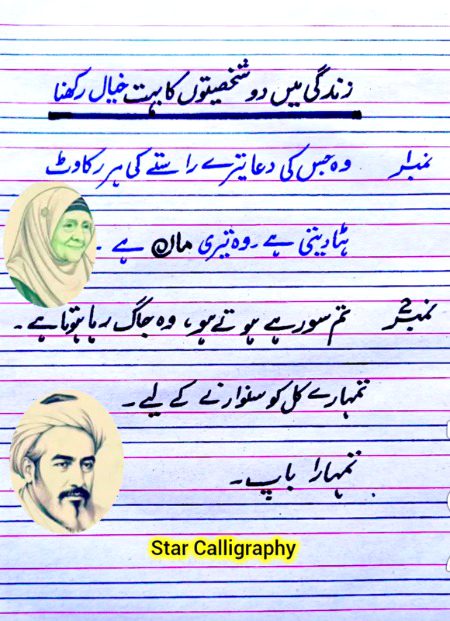 زندگی میں دو شخصیتوں کا بہت خیال رکھنا
نمبر1 وہ جس کی دعا تیرے راستے کی ہر رکاوٹ
ہٹا دیتی ہے ۔ وہ تیری ماں ہے ۔
نمبر2 تم سو رہے ہوتے ہو، وہ جاگ رہا ہوتا ہے ۔
تمہارے کل کو سنوارنے کے لیے ۔
تمہارا باپ ۔
Star Calligraphy